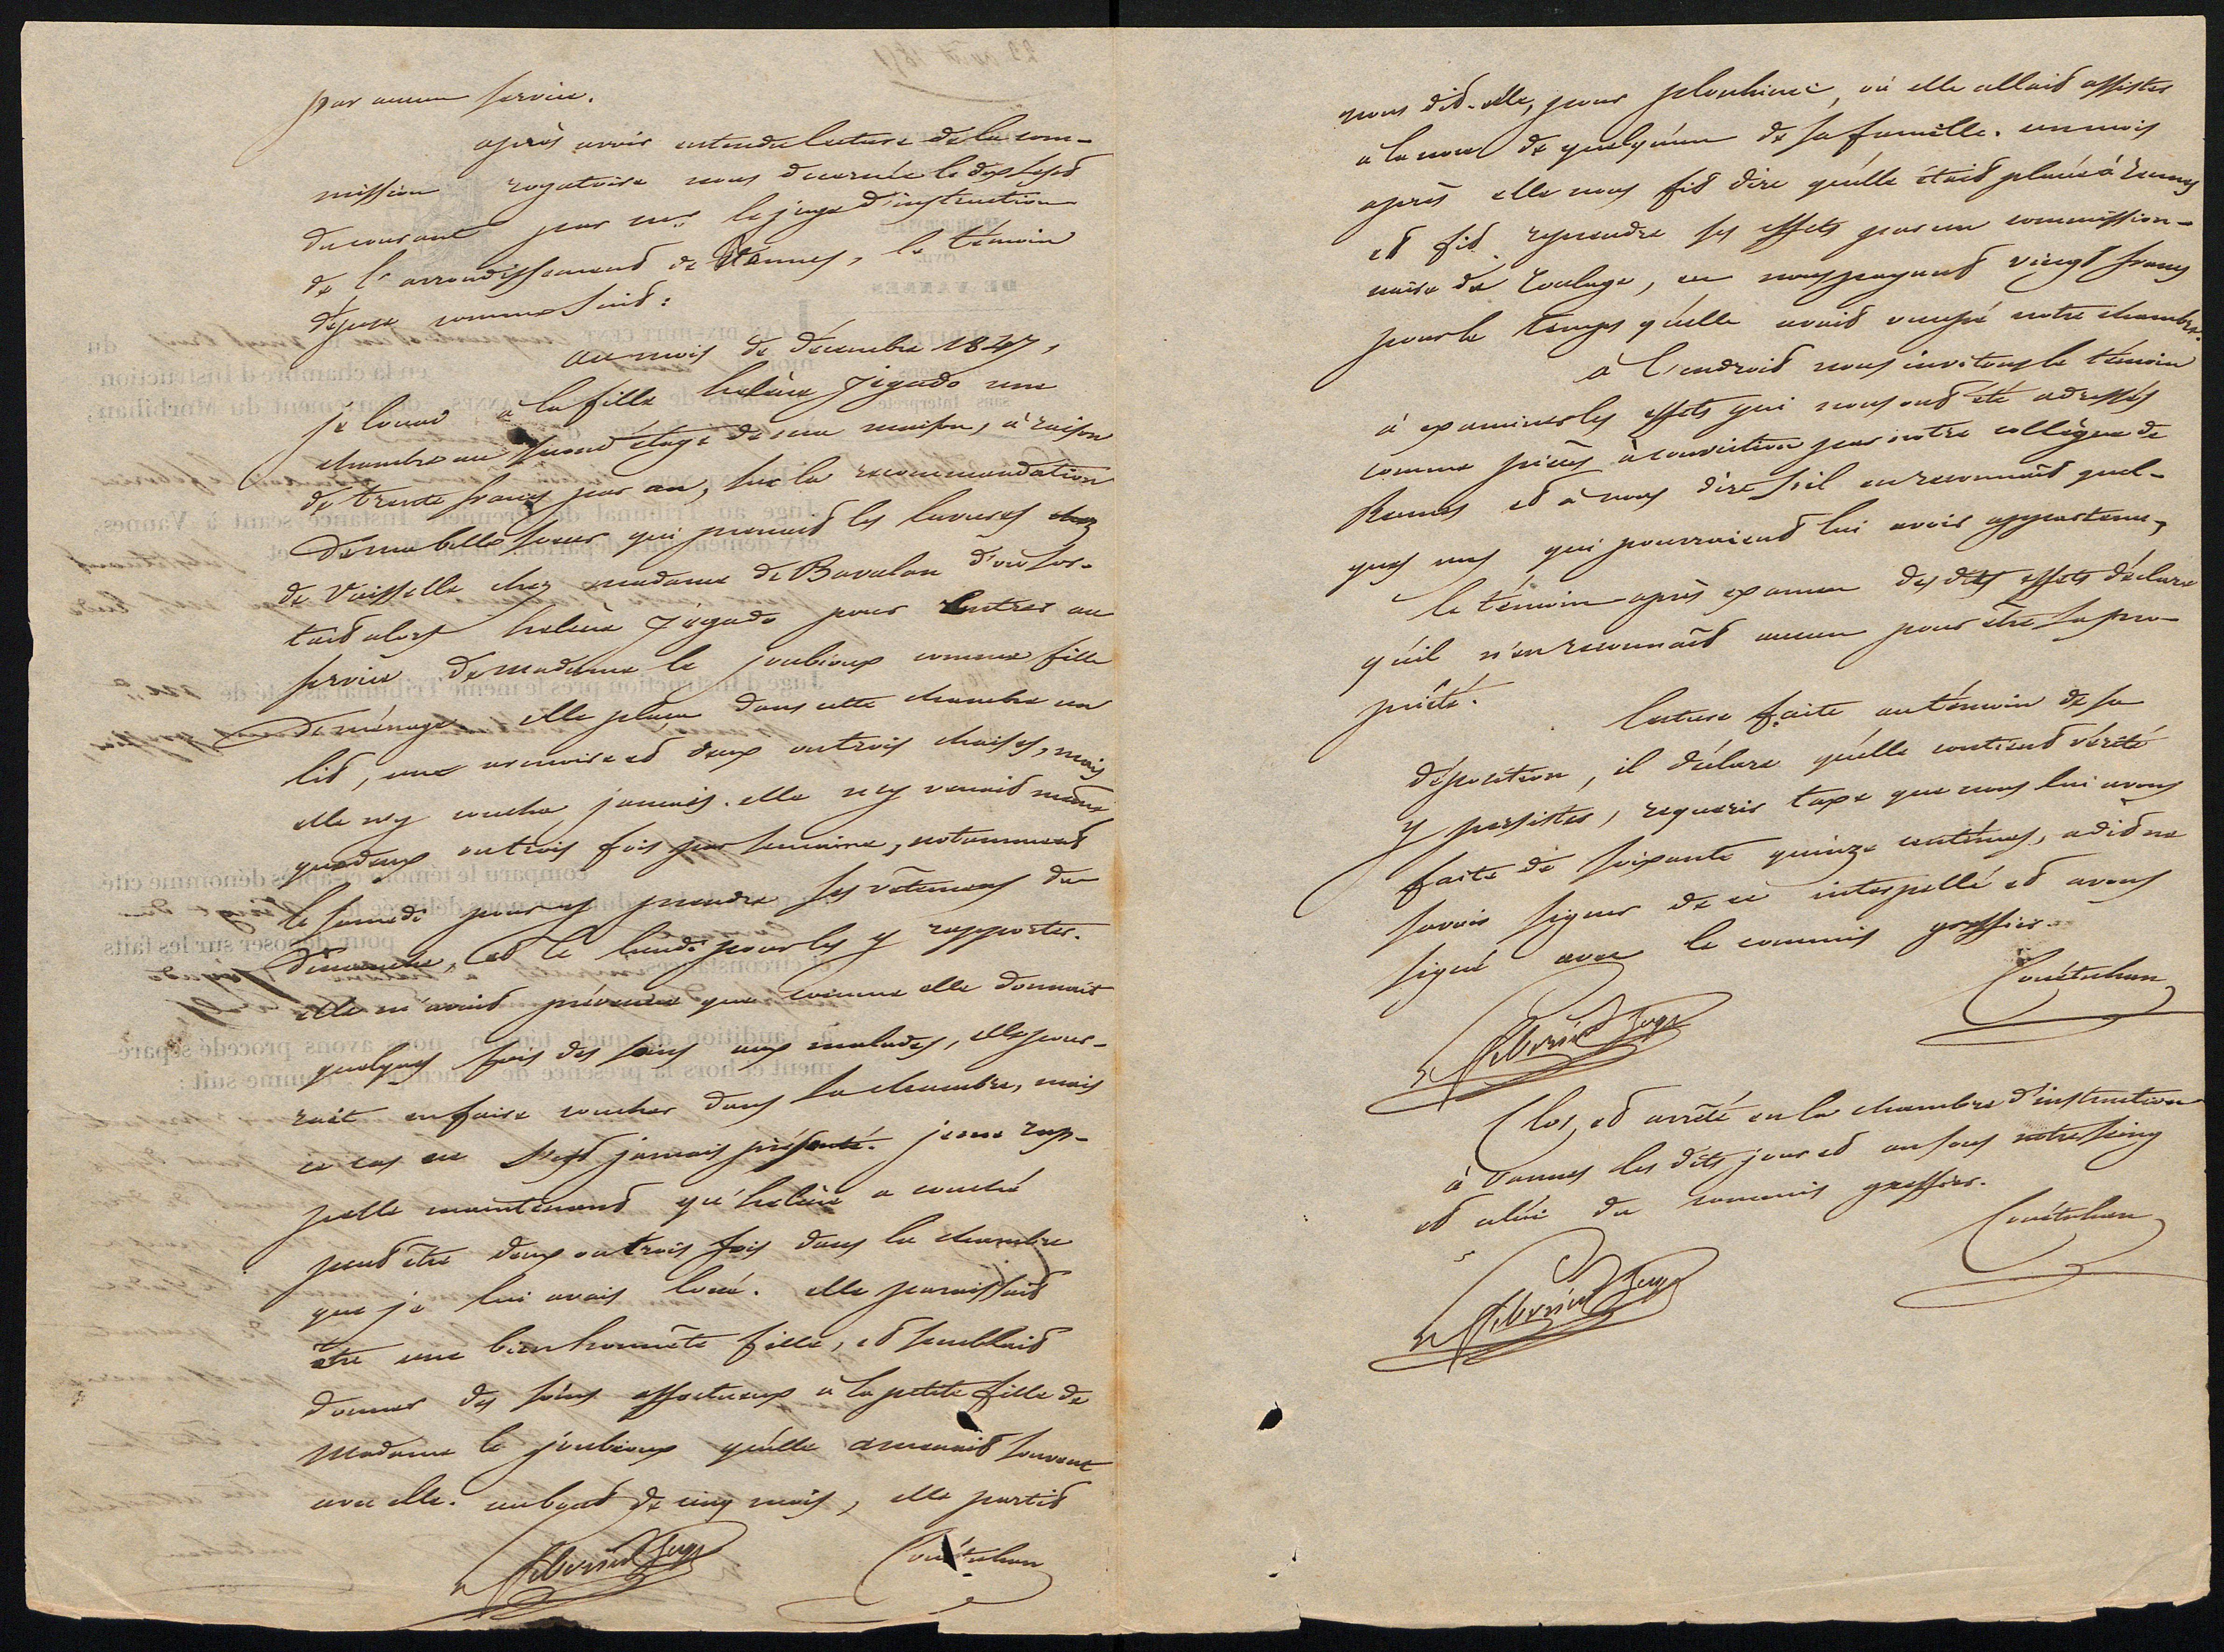 par aucun service.
après avoir entendu lecture de la com-
mission rogatoire nous décernée le dix sept
du courant par mr. le juge d'instruction
de l'arrondissement de Rennes, le témoin
dépose comme suit:
au mois de décembre 1847,
je louai à la fille helène Jégado une
chambre au second étage de ma maison, à raison
de trente francs par an, sur la recommandation
de ma belle soeur qui prenait les lavures
de vaisselle chez madame de Bavalan d'où sor-
tait alors helène Jégado pour entrer au
service de madame le joubioux comme fille
de ménage. elle plaça dans cette chambre un
lit, une armoire et deux ou trois chaises, mais
elle n'y coucha jamais. elle n'y venait même
que deux ou trois fois par semaine, notamment
le samedi pour y prendre ses vêtemens du
dimanche, et le lundi pour les y rapporter.
elle m'avait prévenu que comme elle donnait
quelques fois des soins aux malades, elle pour-
rait en faire coucher dans sa chambre, mais
ce cas ne s'est jamais présenté. je me rap-
pelle maintenant qu'helène a couché
peut être deux ou trois fois dans la chambre
que je lui avais loué. elle paraissait
être une bien honnête fille, et semblait
donner des soins affectueux à la petite fille de
madame le joubioux qu'elle amenait souvent
avec elle. au bout de cinq mois, elle partit
juge
nous dit-elle, pour plouhinec, où elle allait assister
à la noce de quelqu'un de sa famille. un mois
après elle nous fit dire qu'elle était placée à rennes
et fit reprendre ses effets par un commission-
naire de roulage, en nous payant vingt francs
pour le temps qu'elle avait occupé notre chambre.
à l'endroit nous invitons le témoin
à examiner les effets qui nous ont été adressés
comme pièces à conviction par notre collègue de
Rennes et à nous dire s'il en reconnaît quel-
ques uns qui pourraient lui avoir appartenu,
le témoin après examen des dits effets déclare
qu'il n'en reconnaît aucun pour être sa pro-
priété.
lecture faite au témoin de sa
déposition, il déclare qu'elle contient vérité
y persister, requérir taxe que nous lui avons
faite de soixante quinze centimes, a dit ne
savoir signer de ce interpellé et avons
signé avec le commis greffier.
juge
Clos, et arrêté en la chambre d'instruction
à Vannes les dits jour et an sous notre seing
et celui du commis greffier.
juge